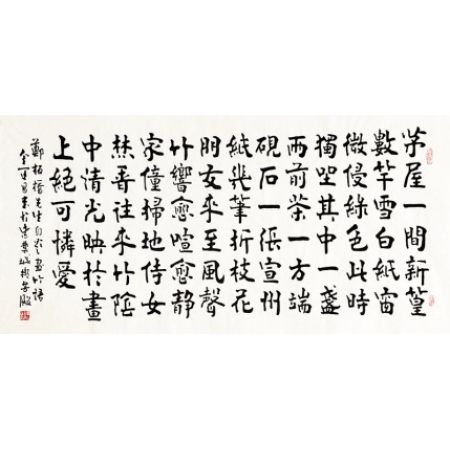 茅屋一間新篁
數竿雪白紙窗
微侵綠色此時
獨坐其中一盞
雨前茶一方端
硯石一張宣州
紙幾筆折枝花
朋友來至風聲
竹響愈喧愈靜
家僮掃地侍女
焚香往來竹陰
中清光映於畫
上絕可憐愛
鄭板橋先生畫竹語